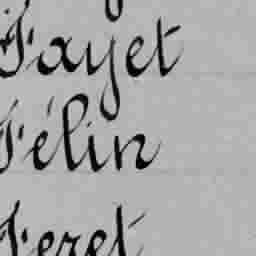 Fayet
Félin
Feret